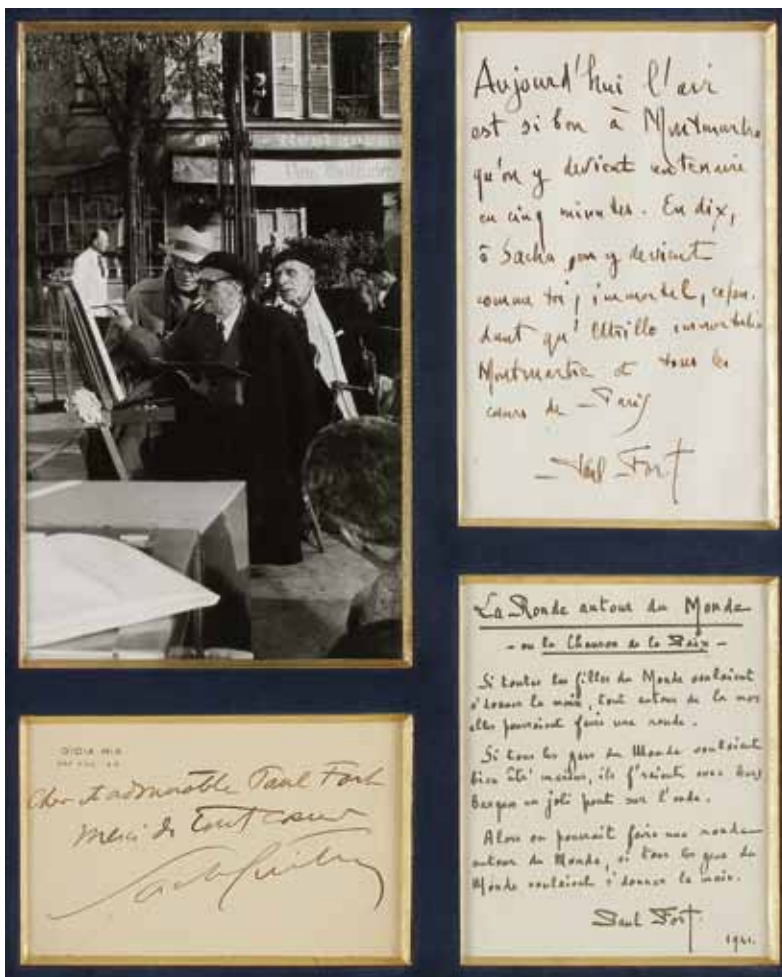 Aujourd'hui l'air
est si bon à Montmartre
qu'on y devient centenaire
en cinq minutes. En dix,
ô Sacha, on y devient
comme toi, immortel, cepen-
dant qu'Utrillo immortalise
Montmartre et tous les
cœurs de Paris
Paul Fort
La Ronde autour du Monde
- ou la Chanson de la Paix -
Si toutes les filles du Monde voulaient
s'donner la main, tout autour de la mer
elles pourraient faire une ronde.
Si tous les gars du Monde voulaient
bien êtr' marins, ils f'raient avec leurs
barques un joli pont sur l'onde.
Alors on pourrait faire une ronde
autour du Monde, si tous les gens du
Monde voulaient s'donner la main.
Paul Fort
1941.
Cher et admirable Paul Fort
Merci de tout cœur
Sacha Guitry